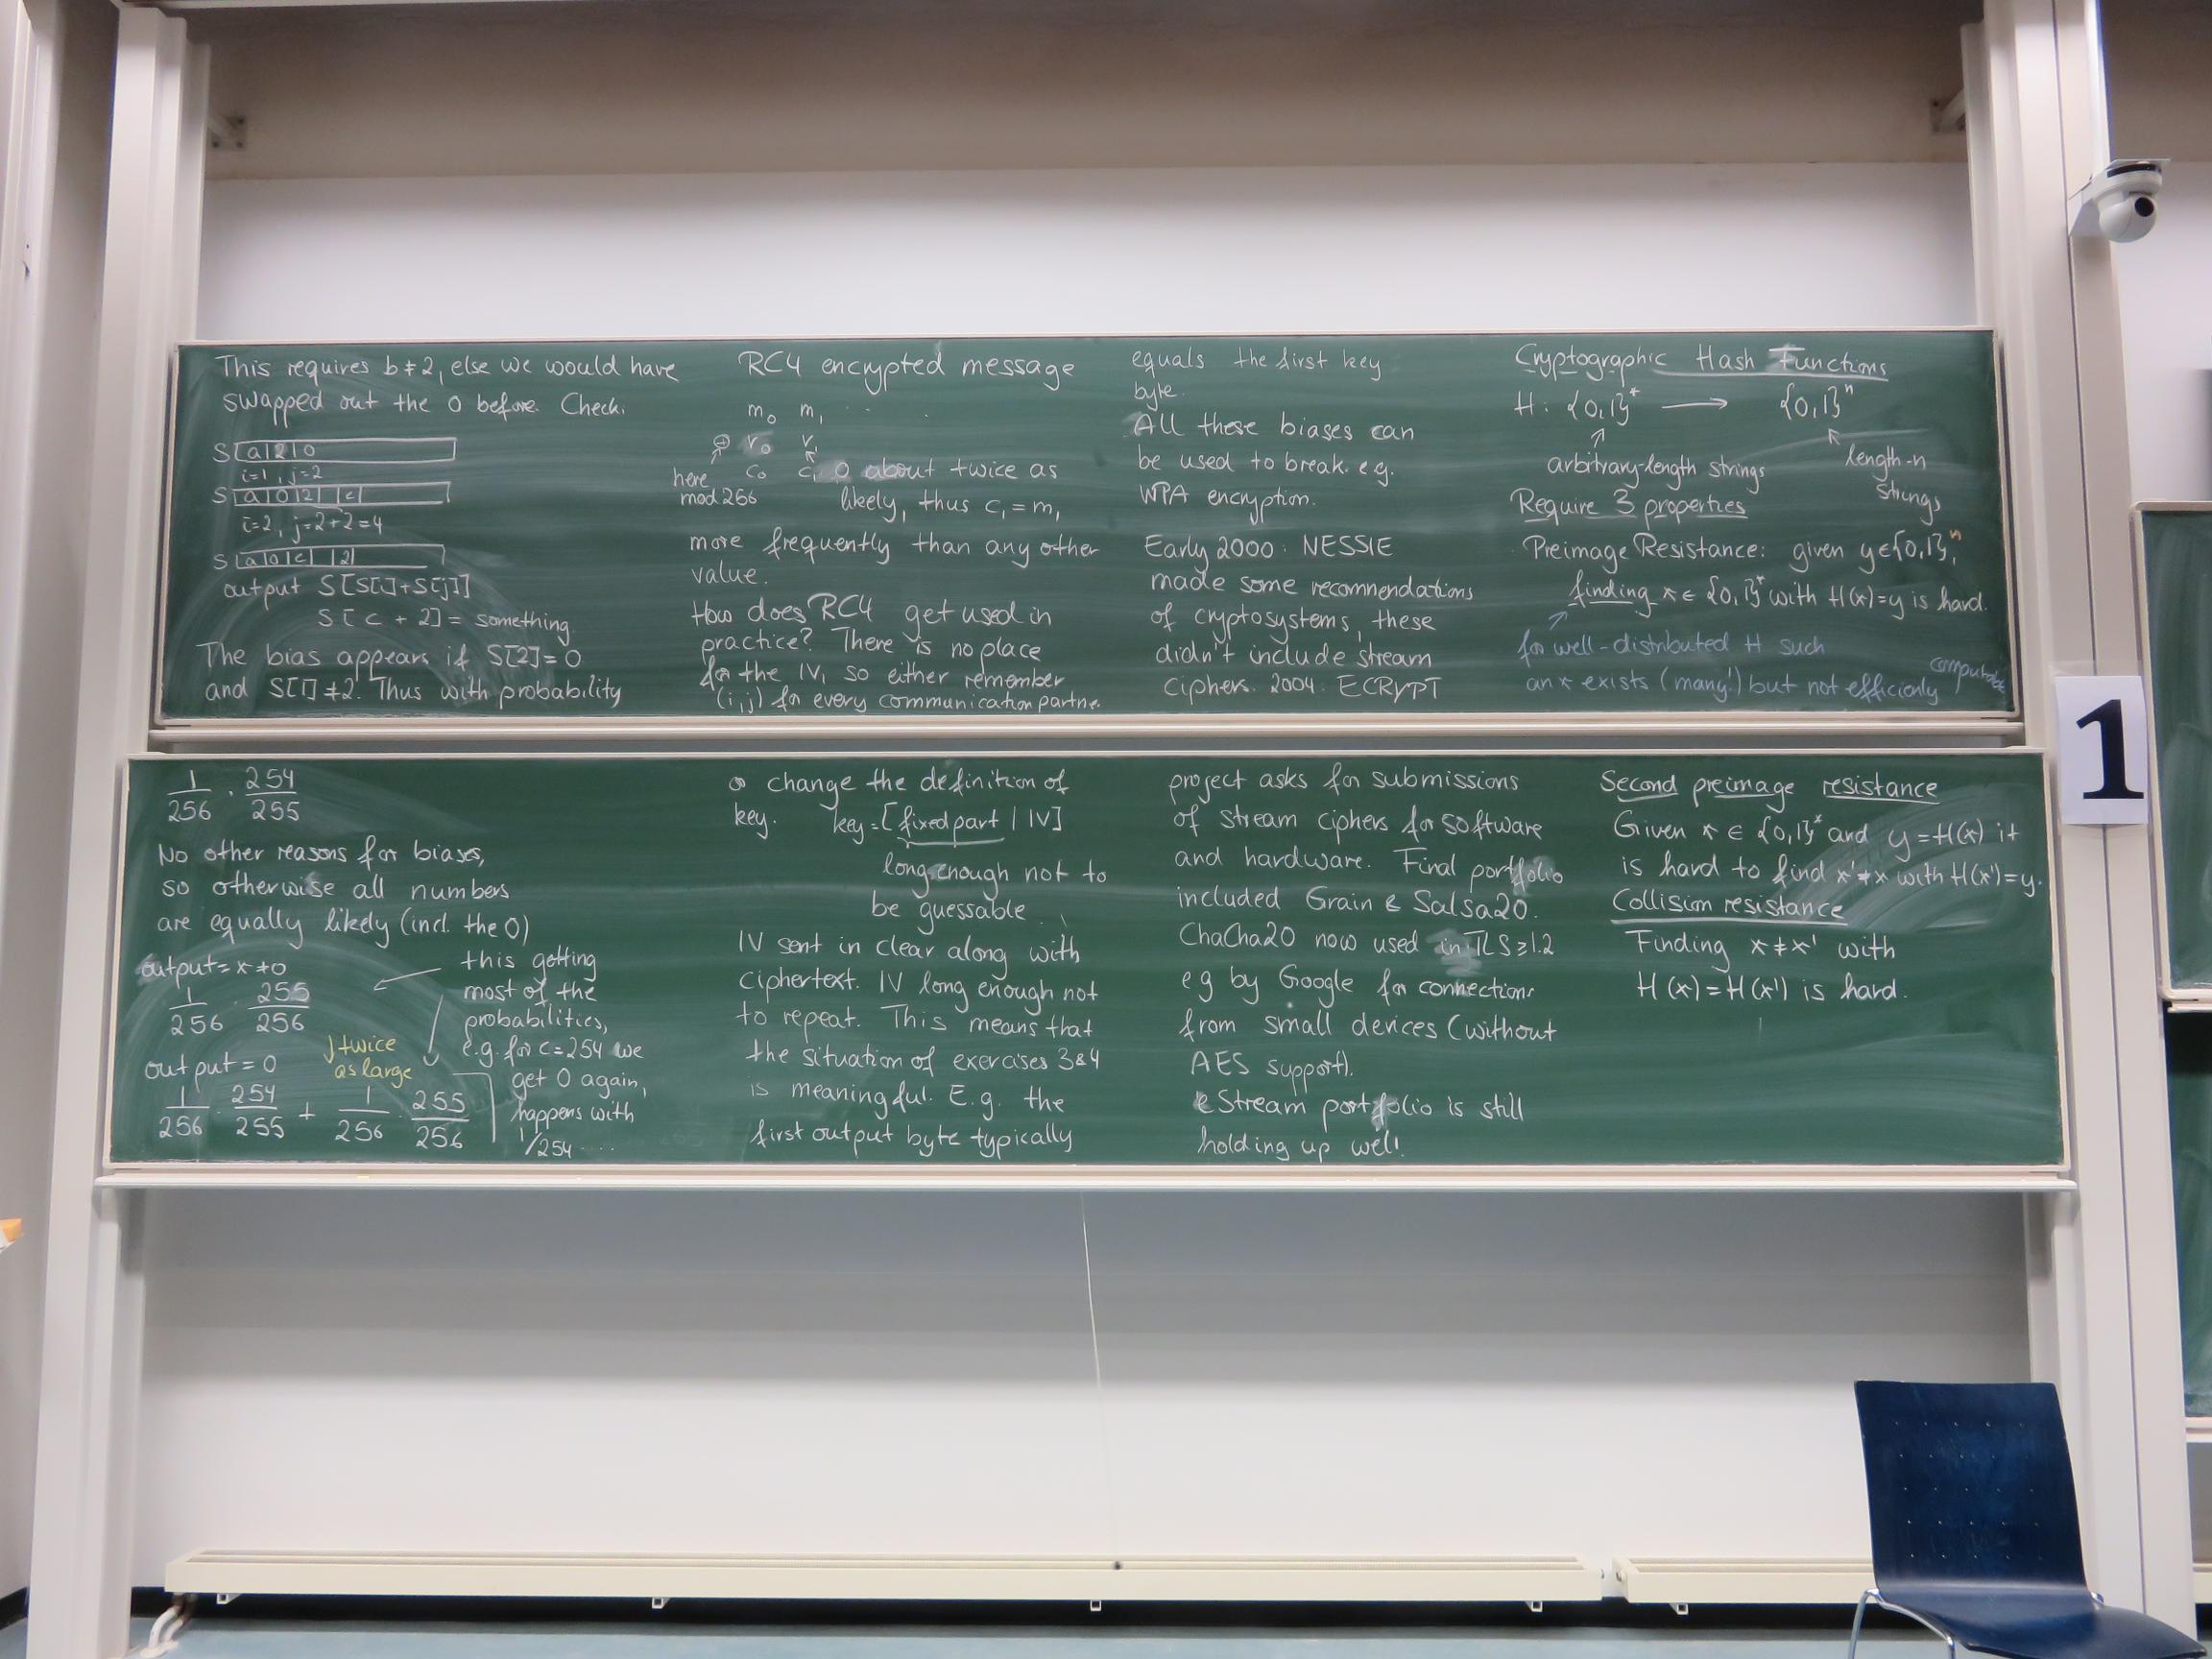 This requires b≠2, else we would have
swapped out the 0 before. Check.
S |a|2|0
i=1, j=2
S |a|0|2| |c|
i=2, j=2+2=4
S |a|0|c| |2|
output S[S[i]+S[j]]
S[c + 2] = something
The bias appears if S[2]=0
and S[1]≠2. Thus with probability
1/256 · 254/255
No other reasons for biases,
so otherwise all numbers
are equally likely (incl. the 0)
output=x≠0
1/256 · 255/256
this getting
most of the
probabilities,
e.g. for c=254 we
get 0 again,
happens with
1/254 ....
output = 0
twice
as large
1/256 · 254/255 + 1/256 · 255/256
RC4 encrypted message
m₀ m₁ . . .
⊕ r₀ r₁
here c₀ c₁ 0 about twice as
mod 266 likely, thus c₁ = m₁
more frequently than any other
value.
How does RC4 get used in
practice? There is no place
for the IV, so either remember
(i,j) for every communication partner
or change the definition of
key. key=[fixed part | IV]
long enough not to
be guessable.
IV sent in clear along with
ciphertext. IV long enough not
to repeat. This means that
the situation of exercises 3&4
is meaningful. E.g. the
first output byte typically
equals the first key
byte.
All these biases can
be used to break e.g.
WPA encryption.
Early 2000: NESSIE
made some recommendations
of cryptosystems, these
didn't include stream
ciphers. 2004: ECRYPT
project asks for submissions
of stream ciphers for software
and hardware. Final portfolio
included Grain & Salsa20.
ChaCha20 now used in TLS≥1.2
eg by Google for connections
from small devices (without
AES support).
eStream portfolio is still
holding up well.
Cryptographic Hash Functions
H: {0,1}* ⟶ {0,1}ⁿ
arbitrary-length strings
length-n
strings
Require 3 properties
Preimage Resistance: given y∈{0,1}ⁿ,
finding x∈{0,1}* with H(x)=y is hard.
for well-distributed H such
an x exists (many!) but not efficienly computable
Second preimage resistance
Given x∈{0,1}* and y=H(x) it
is hard to find x'≠x with H(x')=y.
Collision resistance
Finding x≠x' with
H(x)=H(x') is hard.
1